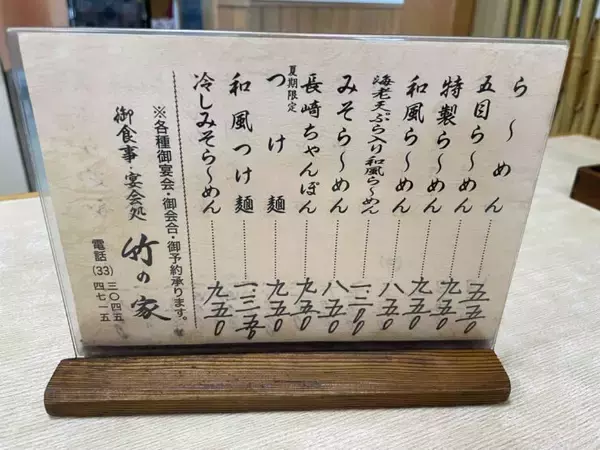 ら〜めん……五五〇
五目ら〜めん……九五〇
特製ら〜めん……九五〇
和風ら〜めん……八五〇
海老天ぷら入り和風ら〜めん……一、一〇〇
みそら〜めん……八五〇
長崎ちゃんぽん……九五〇
夏期限定
つけ麺……九五〇
和風つけ麺……一、一五〇
冷しみそら〜めん……九五〇
※各種御宴会・御会合・御予約承ります。
御食事・宴会処 竹の家
電話(33)三〇四五
四七一五